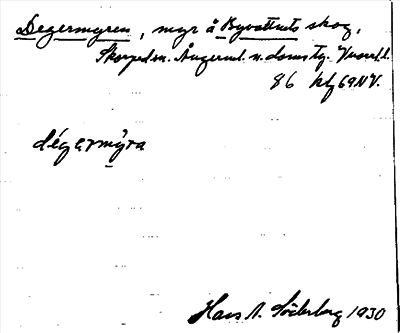 Degermyren, myr å Byvattnets skog,
Skorped sn. Ångerml. n. doms tg. Vnorrl. l.
86 ktg 69 NV.
dégermỳra
Hans A. Söderberg 1930